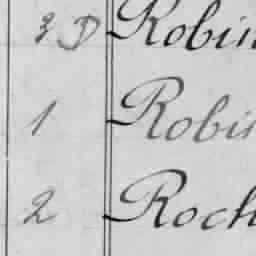 3 D Robin
1 Robin
2 Roch